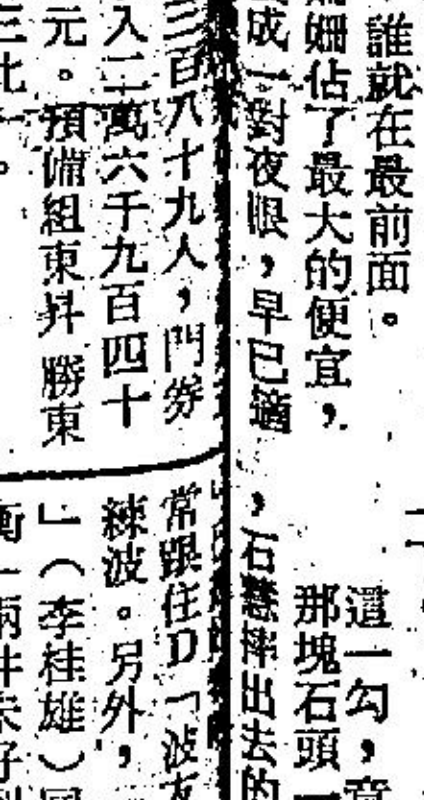 誰就在最前面。
姍佔了最大的便宜，
成一對夜眼，早已適
這一勾，
那塊石頭一
，石慧摔出去的
三百八十九人，門券
入二萬六千九百四十
元。預備組東昇勝東
常跟住D「波友
練波。另外，
」（李桂雄）